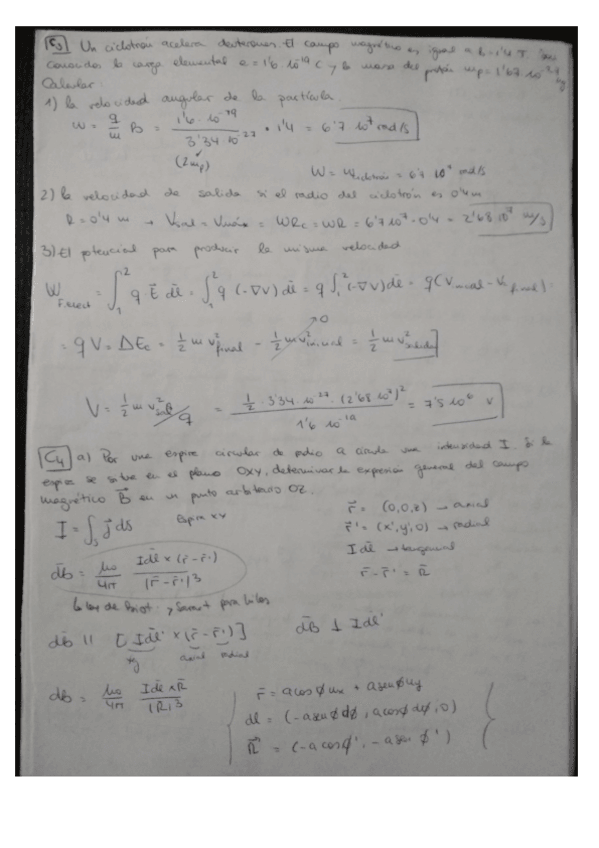 C3 Un ciclotrón acelera deuterones. El campo magnético es igual a B = 1'4 T. Son
conocidos la carga elemental e = 1'6 · 10^-19 C y la masa del protón mp = 1'67 · 10^-27 kg
Calcular:
1) la velocidad angular de la partícula.
W = q/m B = 1'6 · 10^-19 / 3'34 · 10^-27 · 1'4 = 6'7 10^7 rad/s
(2mp)
W = Wciclotrón = 6'7 10^7 rad/s
2) la velocidad de salida si el radio del ciclotrón es 0'4 m
R = 0'4 m → Vsal = Vmáx = WRc = WR = 6'7 10^7 · 0'4 = 2'68 10^7 m/s
3) El potencial para producir la misma velocidad
W F.elect = ∫_1^2 q · E dl = ∫_1^2 q (-∇V) dl = q ∫_1^2 (-∇V) dl = q (V inicial - V final) =
= q V = ΔEc = 1/2 m v^2 final - 1/2 m v^2 inicial = 1/2 m v^2 salida
0
V = 1/2 m v^2 sal / q = 1/2 · 3'34 · 10^-27 · (2'68 10^7)^2 / 1'6 10^-19 = 7'5 10^6 V
C4 a) Por una espira circular de radio a circula una intensidad I. Si la
espira se sitúa en el plano OXY, determinar la expresión general del campo
magnético B en un punto arbitrario OZ.
I = ∫_S j ds espira xy
r = (0,0,z) → axial
r' = (x',y',0) → radial
I dl → tangencial
r - r' = R
dB = μ0/4π I dl × (r - r') / |r - r'|^3
la ley de Biot y Savart para hilos
dB || [I dl' × (r - r')] dB ⊥ I dl'
xy axial radial
dB = μ0/4π I dl × R / |R|^3
r = a cos ϕ ux + a sen ϕ uy
dl = (-a sen ϕ dϕ, a cos ϕ dϕ, 0)
R = (-a cos ϕ', -a sen ϕ')